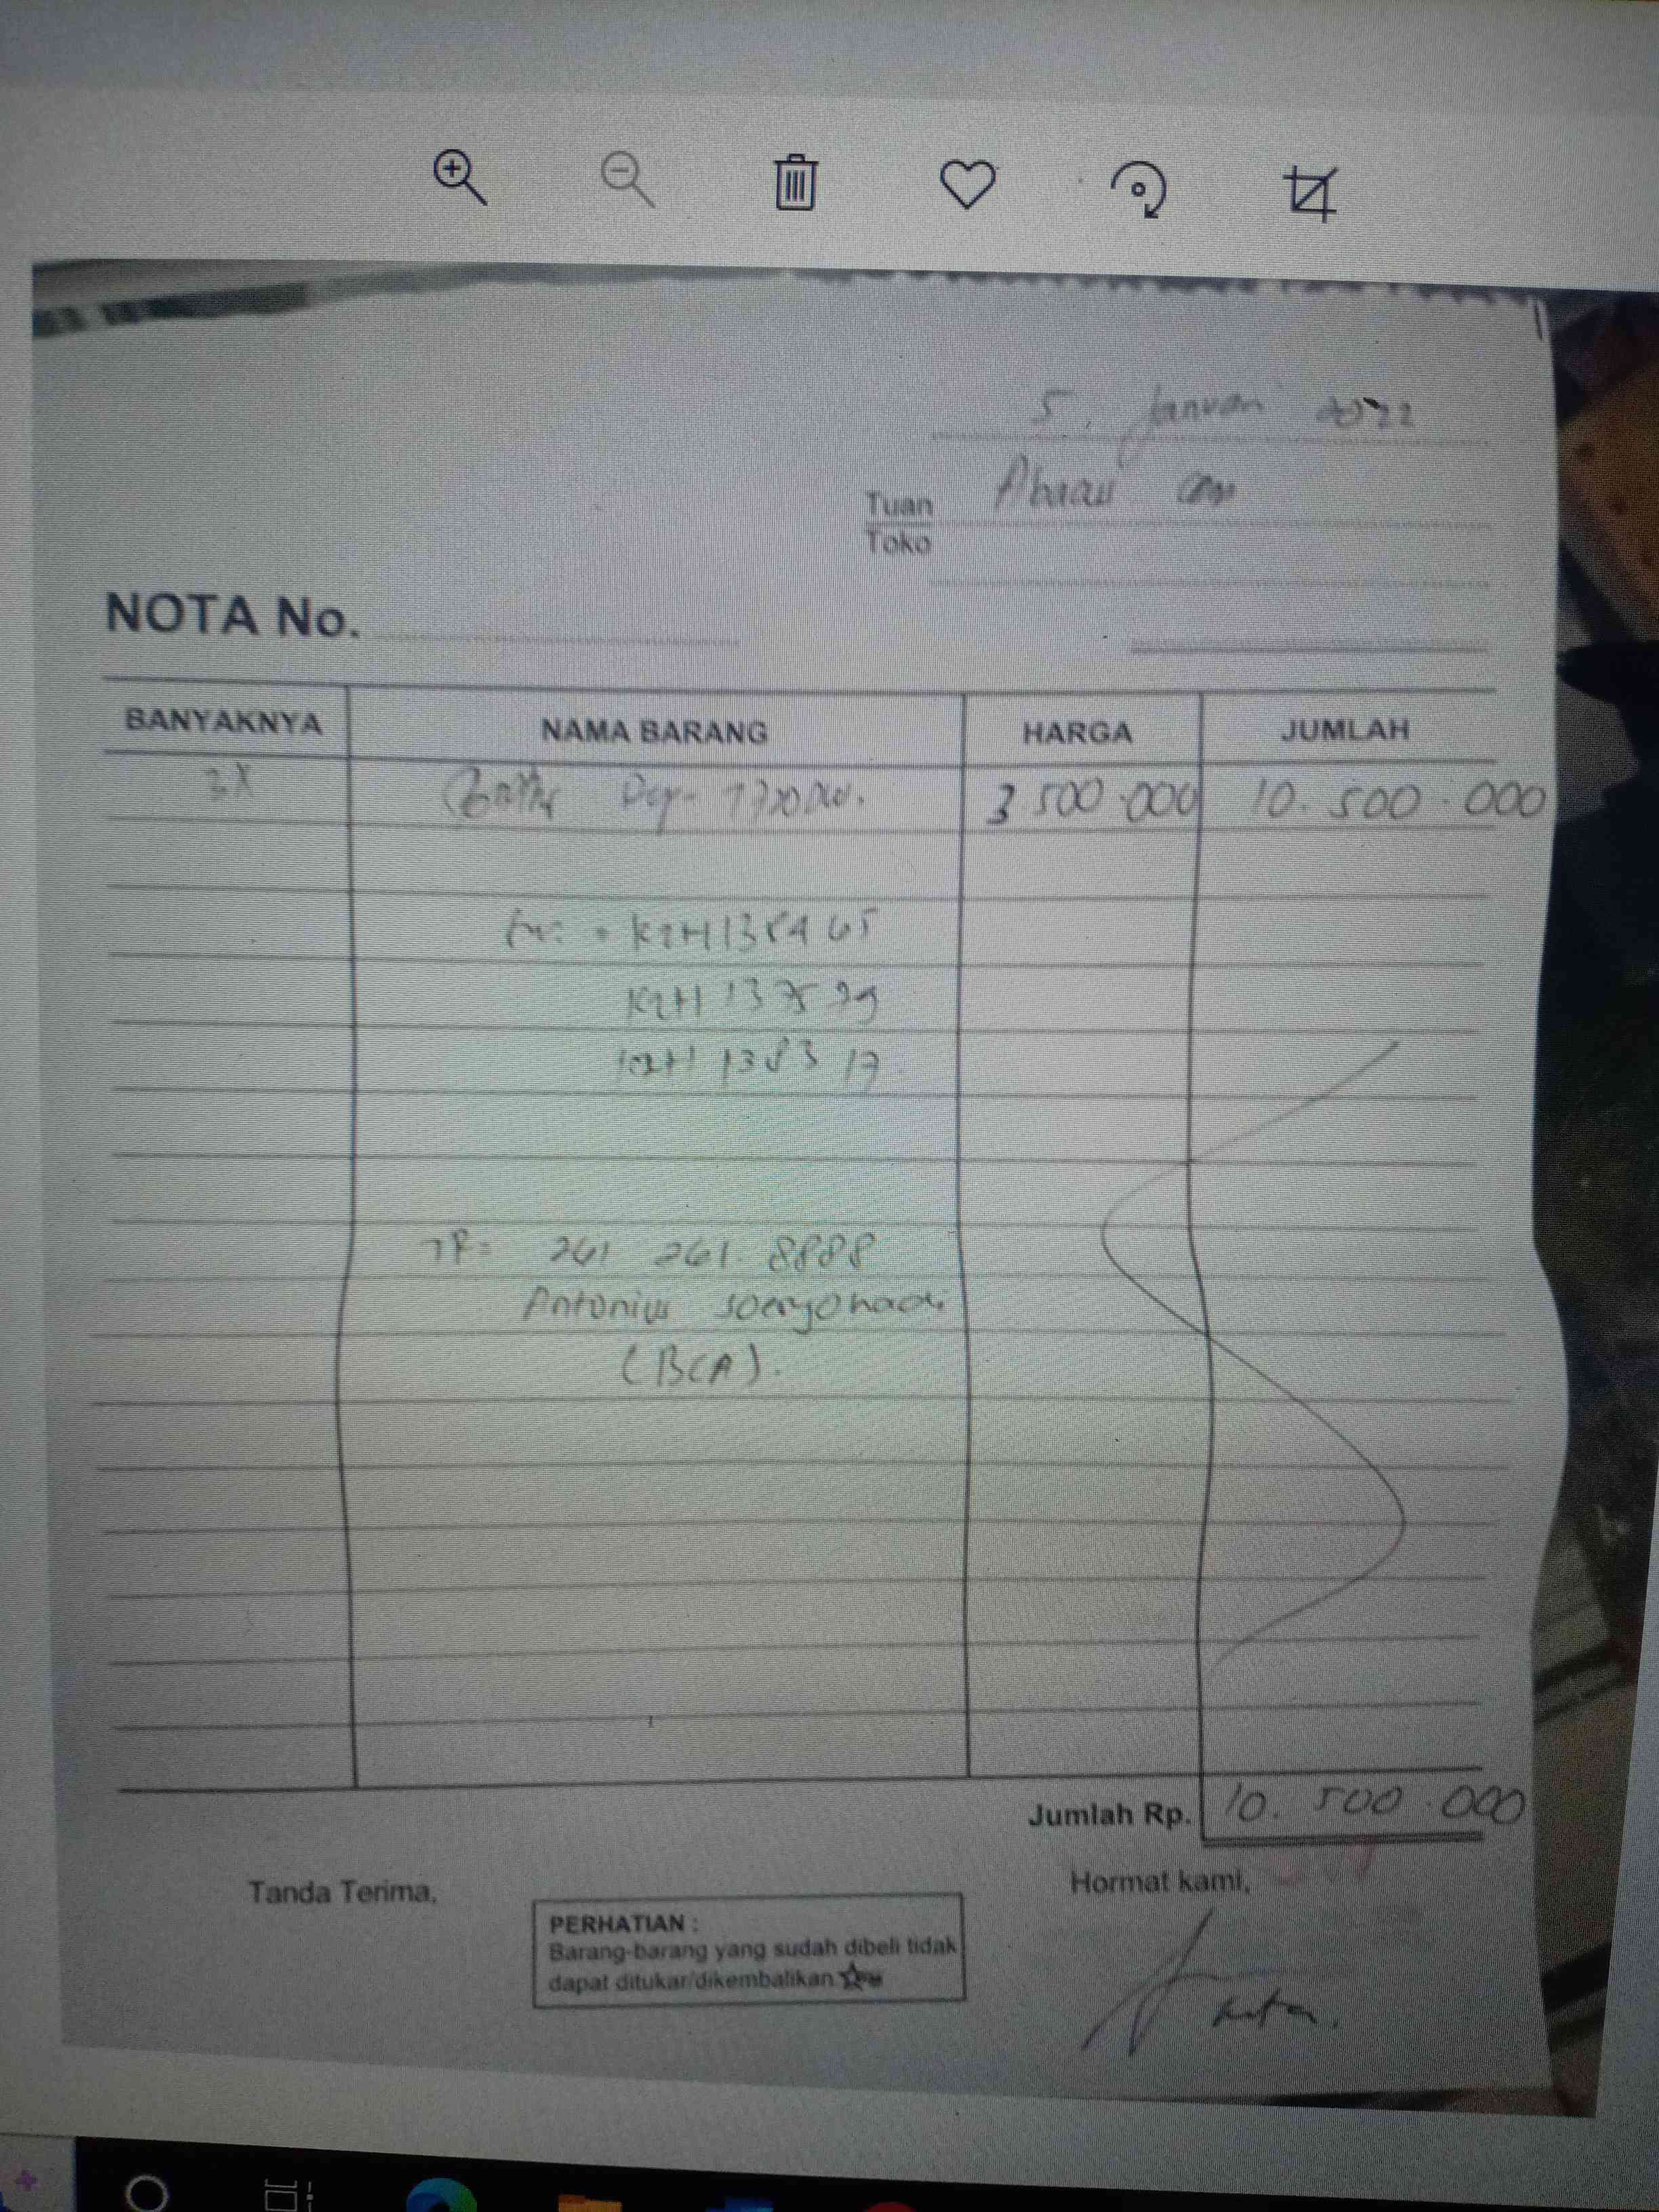 5, Januari 2022
Tuan
Toko
NOTA No.
BANYAKNYA NAMA BARANG HARGA JUMLAH
3X Dcp- 3 500.000 10.500.000
K2H138465
K2H1375
K2H1383 17
TR= 261 261.8888
Antonius Soeryohadi
(BCA).
Jumlah Rp. 10.500.000
Tanda Terima, Hormat kami,
PERHATIAN :
Barang-barang yang sudah dibeli tidak
dapat ditukar/dikembalikan